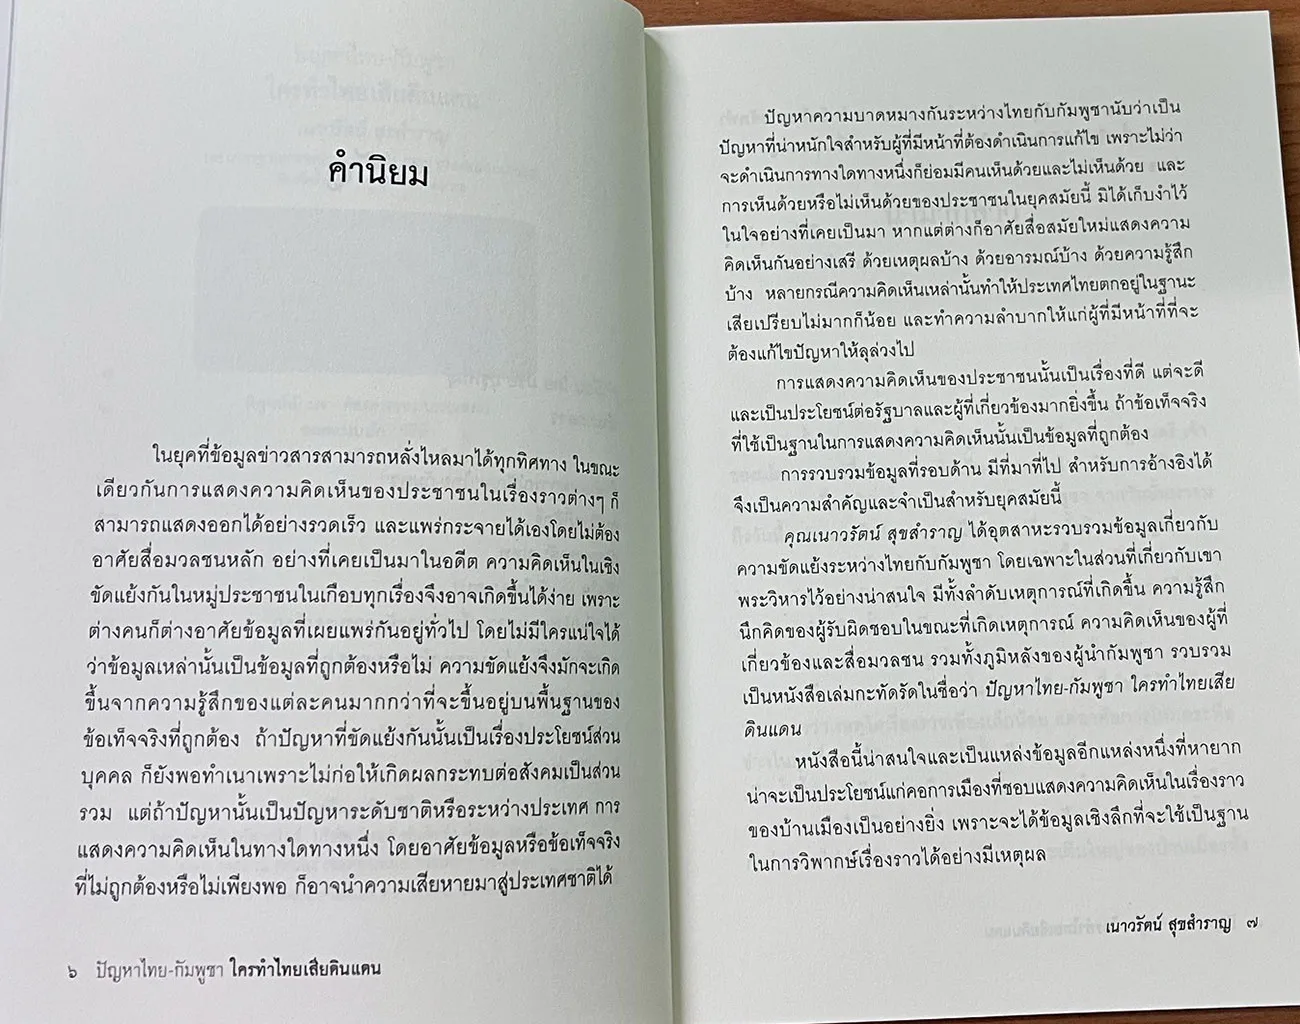 คำนิยม
ในยุคที่ข้อมูลข่าวสารสามารถหลั่งไหลมาได้ทุกทิศทาง ในขณะ
เดียวกันการแสดงความคิดเห็นของประชาชนในเรื่องราวต่างๆ ก็
สามารถแสดงออกได้อย่างรวดเร็ว และแพร่กระจายได้เองโดยไม่ต้อง
อาศัยสื่อมวลชนหลัก อย่างที่เคยเป็นมาในอดีต ความคิดเห็นในเชิง
ขัดแย้งกันในหมู่ประชาชนในเกือบทุกเรื่องจึงอาจเกิดขึ้นได้ง่าย เพราะ
ต่างคนก็ต่างอาศัยข้อมูลที่เผยแพร่กันอยู่ทั่วไป โดยไม่มีใครแน่ใจได้
ว่าข้อมูลเหล่านั้นเป็นข้อมูลที่ถูกต้องหรือไม่ ความขัดแย้งจึงมักจะเกิด
ขึ้นจากความรู้สึกของแต่ละคนมากกว่าที่จะขึ้นอยู่บนพื้นฐานของ
ข้อเท็จจริงที่ถูกต้อง ถ้าปัญหาที่ขัดแย้งกันนั้นเป็นเรื่องประโยชน์ส่วน
บุคคล ก็ยังพอทำเนาเพราะไม่ก่อให้เกิดผลกระทบต่อสังคมเป็นส่วน
รวม แต่ถ้าปัญหานั้นเป็นปัญหาระดับชาติหรือระหว่างประเทศ การ
แสดงความคิดเห็นในทางใดทางหนึ่ง โดยอาศัยข้อมูลหรือข้อเท็จจริง
ที่ไม่ถูกต้องหรือไม่เพียงพอ ก็อาจนำความเสียหายมาสู่ประเทศชาติได้
๖ ปัญหาไทย-กัมพูชา ใครทำไทยเสียดินแดน
ปัญหาความบาดหมางกันระหว่างไทยกับกัมพูชานับว่าเป็น
ปัญหาที่น่าหนักใจสำหรับผู้ที่มีหน้าที่ต้องดำเนินการแก้ไข เพราะไม่ว่า
จะดำเนินการทางใดทางหนึ่งก็ย่อมมีคนเห็นด้วยและไม่เห็นด้วย และ
การเห็นด้วยหรือไม่เห็นด้วยของประชาชนในยุคสมัยนี้ มิได้เก็บงำไว้
ในใจอย่างที่เคยเป็นมา หากแต่ต่างก็อาศัยสื่อสมัยใหม่แสดงความ
คิดเห็นกันอย่างเสรี ด้วยเหตุผลบ้าง ด้วยอารมณ์บ้าง ด้วยความรู้สึก
บ้าง หลายกรณีความคิดเห็นเหล่านั้นทำให้ประเทศไทยตกอยู่ในฐานะ
เสียเปรียบไม่มากก็น้อย และทำความลำบากให้แก่ผู้ที่มีหน้าที่ที่จะ
ต้องแก้ไขปัญหาให้ลุล่วงไป
การแสดงความคิดเห็นของประชาชนนั้นเป็นเรื่องที่ดี แต่จะดี
และเป็นประโยชน์ต่อรัฐบาลและผู้ที่เกี่ยวข้องมากยิ่งขึ้น ถ้าข้อเท็จจริง
ที่ใช้เป็นฐานในการแสดงความคิดเห็นนั้นเป็นข้อมูลที่ถูกต้อง
การรวบรวมข้อมูลที่รอบด้าน มีที่มาที่ไป สำหรับการอ้างอิงได้
จึงเป็นความสำคัญและจำเป็นสำหรับยุคสมัยนี้
คุณเนาวรัตน์ สุขสำราญ ได้อุตสาหะรวบรวมข้อมูลเกี่ยวกับ
ความขัดแย้งระหว่างไทยกับกัมพูชา โดยเฉพาะในส่วนที่เกี่ยวกับเขา
พระวิหารไว้อย่างน่าสนใจ มีทั้งลำดับเหตุการณ์ที่เกิดขึ้น ความรู้สึก
นึกคิดของผู้รับผิดชอบในขณะที่เกิดเหตุการณ์ ความคิดเห็นของผู้ที่
เกี่ยวข้องและสื่อมวลชน รวมทั้งภูมิหลังของผู้นำกัมพูชา รวบรวม
เป็นหนังสือเล่มกะทัดรัดในชื่อว่า ปัญหาไทย-กัมพูชา ใครทำไทยเสีย
ดินแดน
หนังสือนี้น่าสนใจและเป็นแหล่งข้อมูลอีกแหล่งหนึ่งที่หายาก
น่าจะเป็นประโยชน์แก่คอการเมืองที่ชอบแสดงความคิดเห็นในเรื่องราว
ของบ้านเมืองเป็นอย่างยิ่ง เพราะจะได้ข้อมูลเชิงลึกที่จะใช้เป็นฐาน
ในการวิพากษ์เรื่องราวได้อย่างมีเหตุผล
เนาวรัตน์ สุขสำราญ ๗